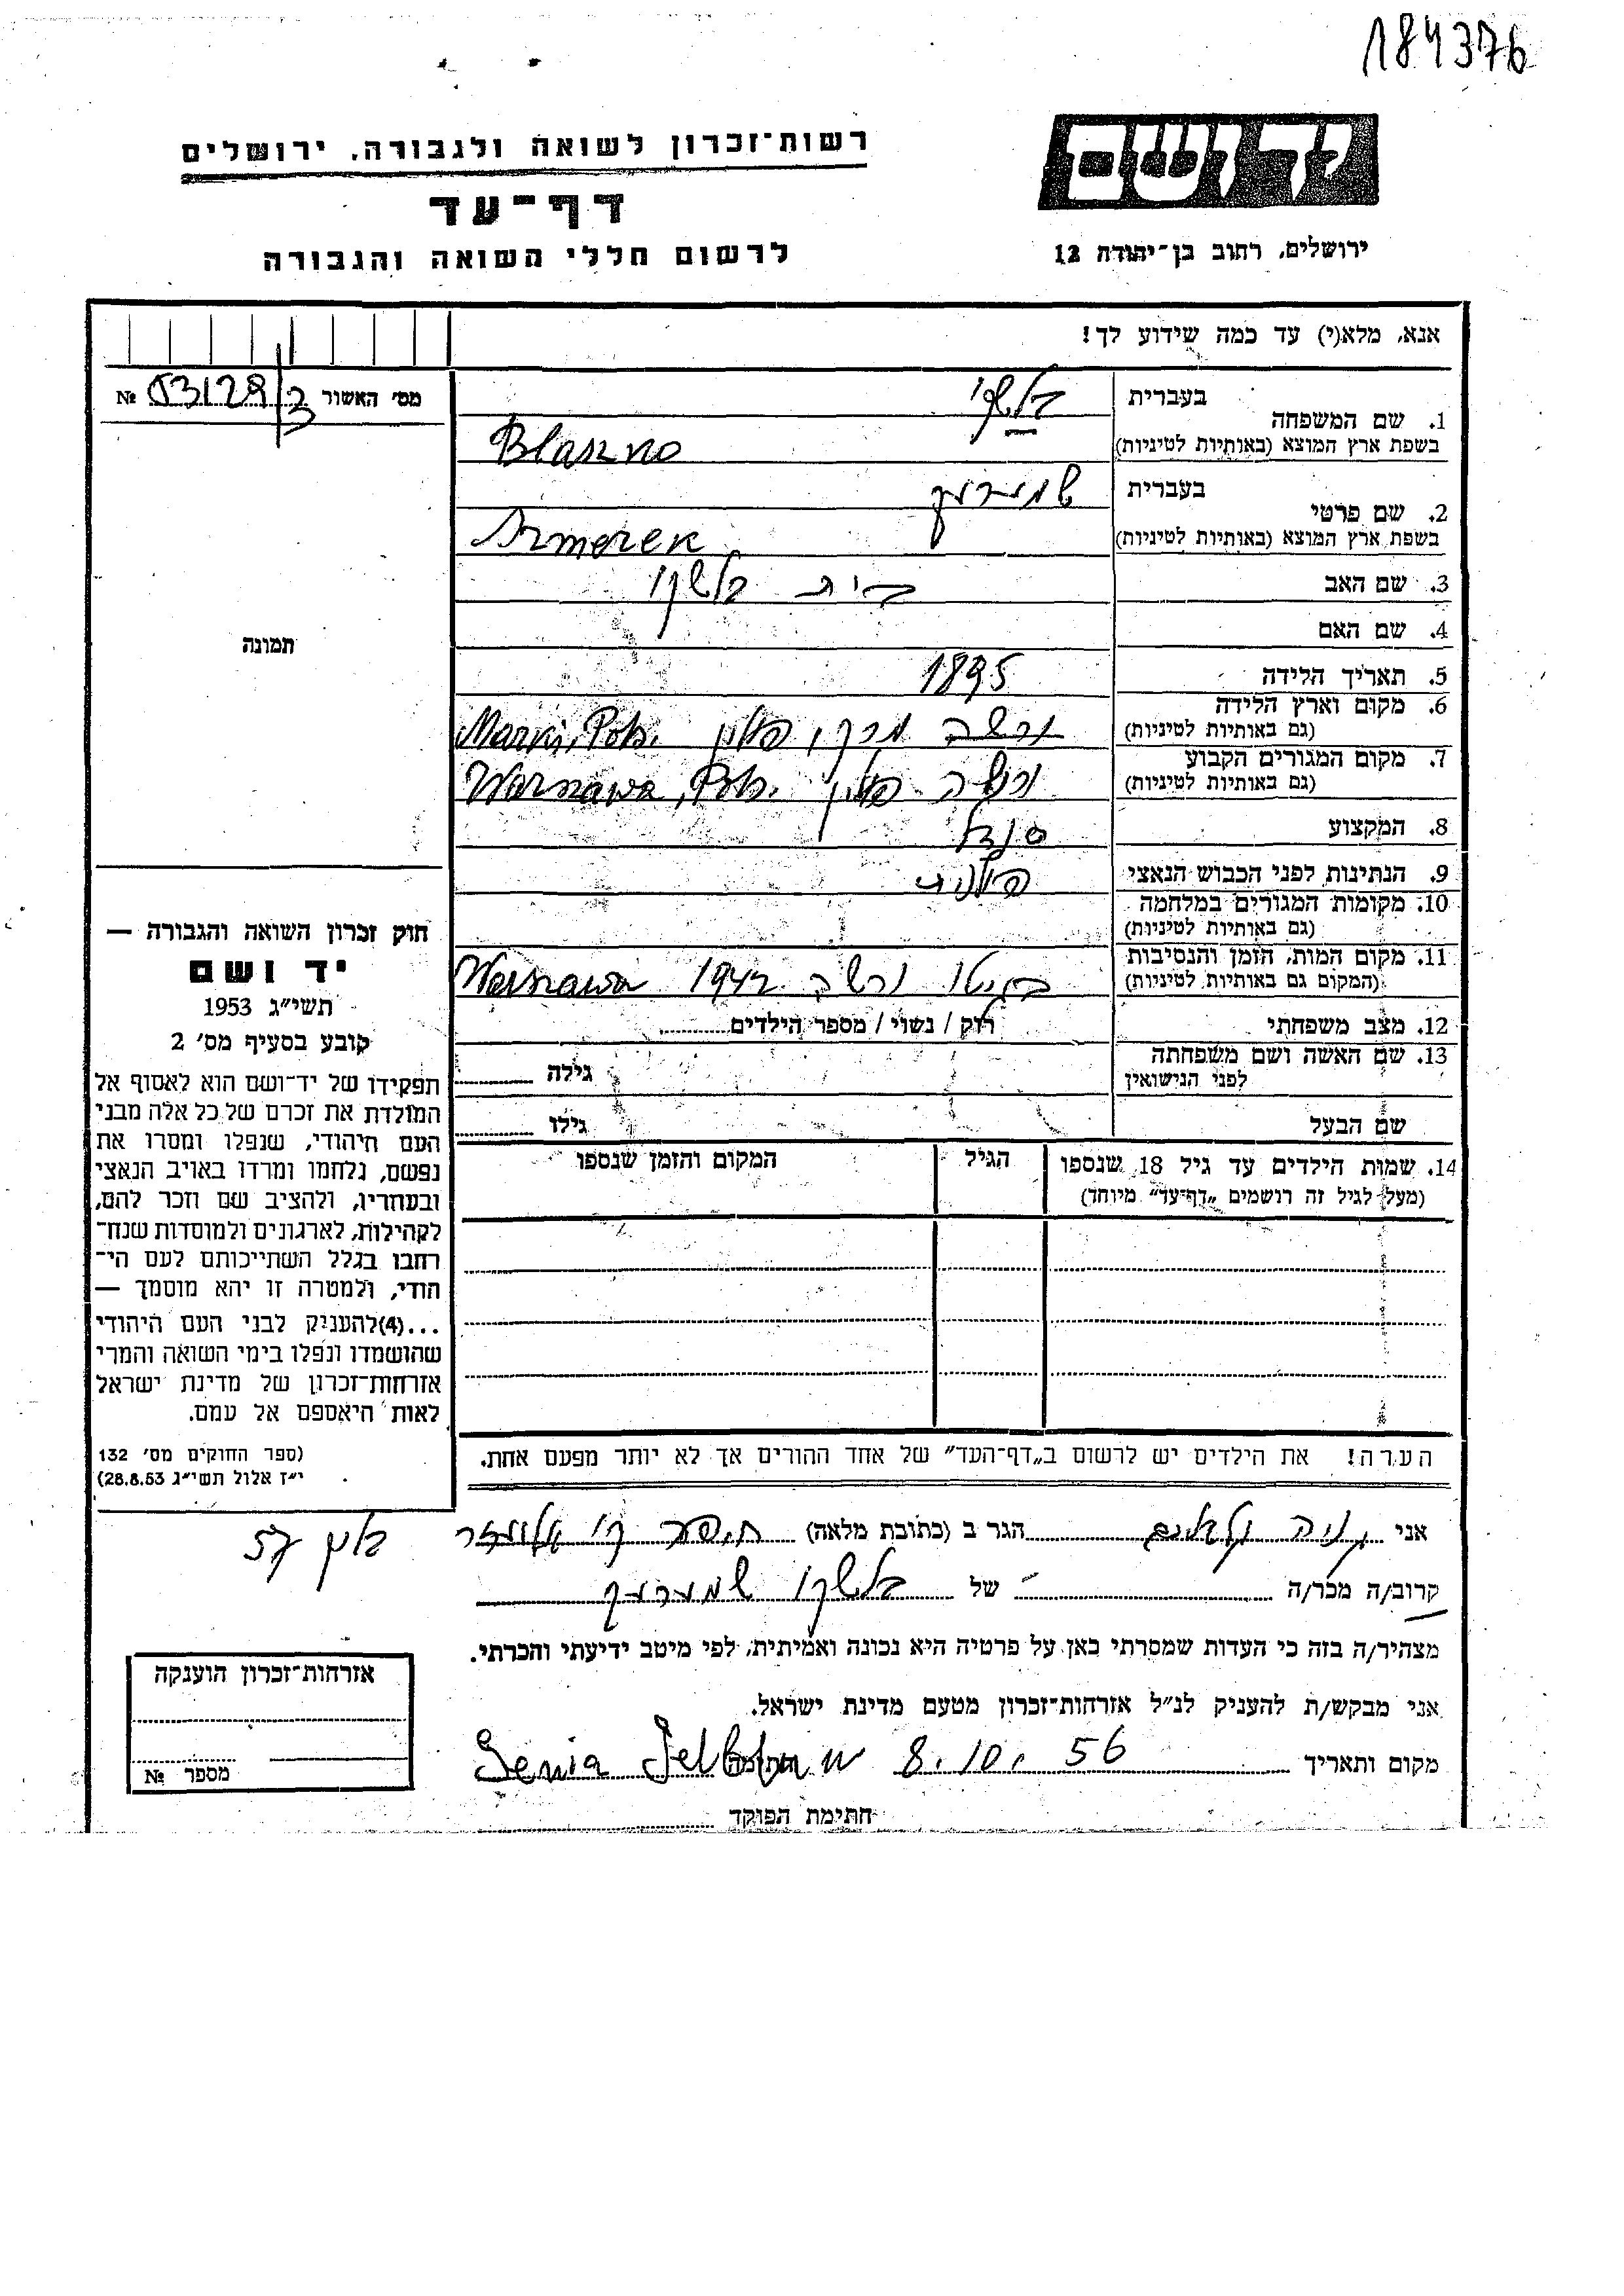 184376
יד ושם
רשות־זכרון לשואה ולגבורה, ירושלים
דף־עד
ירושלים, רחוב בן־יהודה 12
לרשום חללי השואה והגבורה
אנא, מלא(י) עד כמה שידוע לך!
מס׳ האשור 53129/3 №
1. שם המשפחה
בעברית
בשפת ארץ המוצא (באותיות לטיניות)
2. שם פרטי
בעברית שמערעק
בשפת ארץ המוצא (באותיות לטיניות) Szmerek
3. שם האב
4. שם האם
תמונה
5. תאריך הלידה 1895
6. מקום וארץ הלידה ורשה מרקי, פולין Marki, Pol.
(גם באותיות לטיניות)
7. מקום המגורים הקבוע ורשה פולין Warszawa, Pol.
(גם באותיות לטיניות)
8. המקצוע סנדלר
9. הנתינות לפני הכבוש הנאצי פולנית
10. מקומות המגורים במלחמה
(גם באותיות לטיניות)
11. מקום המות, הזמן והנסיבות בגיטו ורשה 1942 Warszawa
(המקום גם באותיות לטיניות)
12. מצב משפחתי רוק / נשוי / מספר הילדים
13. שם האשה ושם משפחתה גילה
לפני הנישואין
שם הבעל גילו
14. שמות הילדים עד גיל 18 שנספו הגיל המקום והזמן שנספו
(מעל לגיל זה רושמים „דף־עד״ מיוחד)
חוק זכרון השואה והגבורה —
יד ושם
תשי״ג 1953
קובע בסעיף מס׳ 2
תפקידו של יד־ושם הוא לאסוף אל
המולדת את זכרם של כל אלה מבני
העם היהודי, שנפלו ומסרו את
נפשם, נלחמו ומרדו באויב הנאצי
ובעוזריו, ולהציב שם וזכר להם,
לקהילות, לארגונים ולמוסדות שנח־
רבו בגלל השתייכותם לעם הי־
הודי, ולמטרה זו יהא מוסמך —
...(4)להעניק לבני העם היהודי
שהושמדו ונפלו בימי השואה והמרי
אזרחות־זכרון של מדינת ישראל
לאות היאספם אל עמם.
(ספר החוקים מס׳ 132
י״ז אלול תשי״ג 28.8.53)
הערה! את הילדים יש לרשום ב„דף־העד״ של אחד ההורים אך לא יותר מפעם אחת.
אני הגר ב (כתובת מלאה) חיפה 57
קרוב/ה מכר/ה של שמערעק
מצהיר/ה בזה כי העדות שמסרתי כאן על פרטיה היא נכונה ואמיתית, לפי מיטב ידיעתי והכרתי.
אני מבקש/ת להעניק לנ״ל אזרחות־זכרון מטעם מדינת ישראל.
מקום ותאריך 8.10.56
חתימת הפוקד
אזרחות־זכרון הוענקה
מספר №